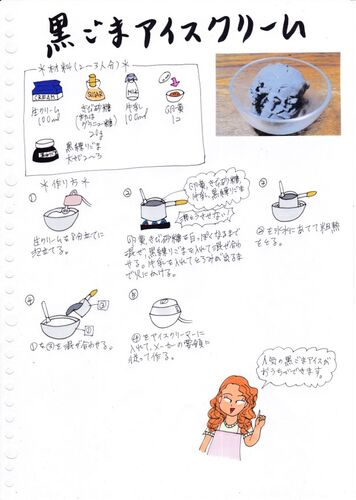 黒ごまアイスクリーム
＊材料(2〜3人分)＊
CREAM
SUGAR
MILK
生クリーム
100ml
きび砂糖
(または
グラニュー糖)
20g
牛乳
100ml
卵黄
1コ
黒練りごま
大さじ2〜3
＊作り方＊
①
生クリームを8分立てに
泡立てる。
②
卵黄、きび砂糖
牛乳、黒練りごま
卵黄、きび砂糖を白っぽくなるまで
混ぜ、黒練りごまを入れて混ぜ合わ
せる。牛乳を入れてとろみが出るま
で火にかける。
③
②を氷水にあてて粗熱
をとる。
④
③
①
①と③を混ぜ合わせる。
⑤
④をアイスクリーマーに
入れて、メーカーの要領に
従って作る。
人気の黒ごまアイスが
おうちでできます。